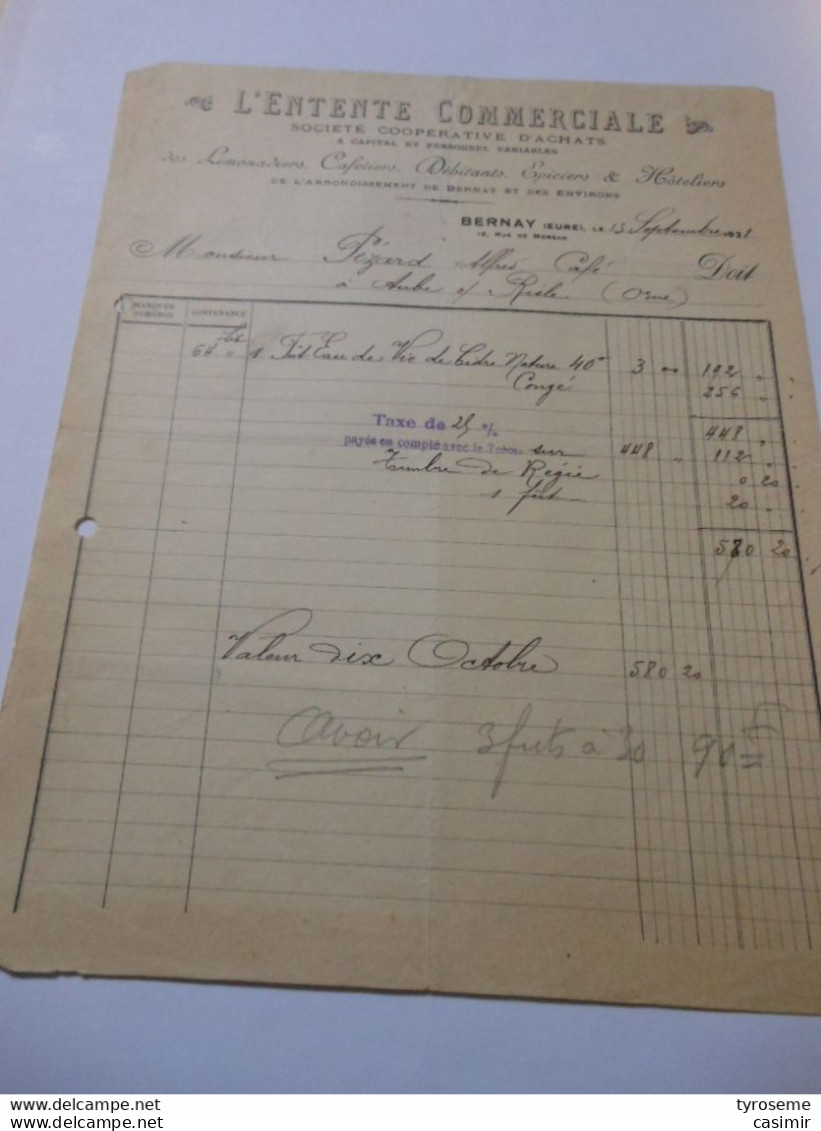 L'ENTENTE COMMERCIALE
SOCIÉTÉ COOPÉRATIVE D'ACHATS
A CAPITAL ET PERSONNEL VARIABLES
des Limonadiers, Cafetiers, Débitants, Epiciers & Hôteliers
DE L'ARRONDISSEMENT DE BERNAY ET DES ENVIRONS
BERNAY (EURE), LE 13 Septembre 1921
Monsieur Pézard Alfred Café Doit
à Aube s/ Risle (Orne)
MARQUES NUMÉROS CONTENANCE
64 lit 1 Fût Eau de Vie de Cidre Nature 40° 3 00 192 "
Congé 256 "
448 "
Taxe de 25 %
payée en compte avec le Trésor sur 448 " 112 "
Timbre de Régie 0 20
1 fût 20 "
580 20
Valeur dix Octobre 580 20
Avoir 3 futs à 30 90 =
tyroseme
casimir